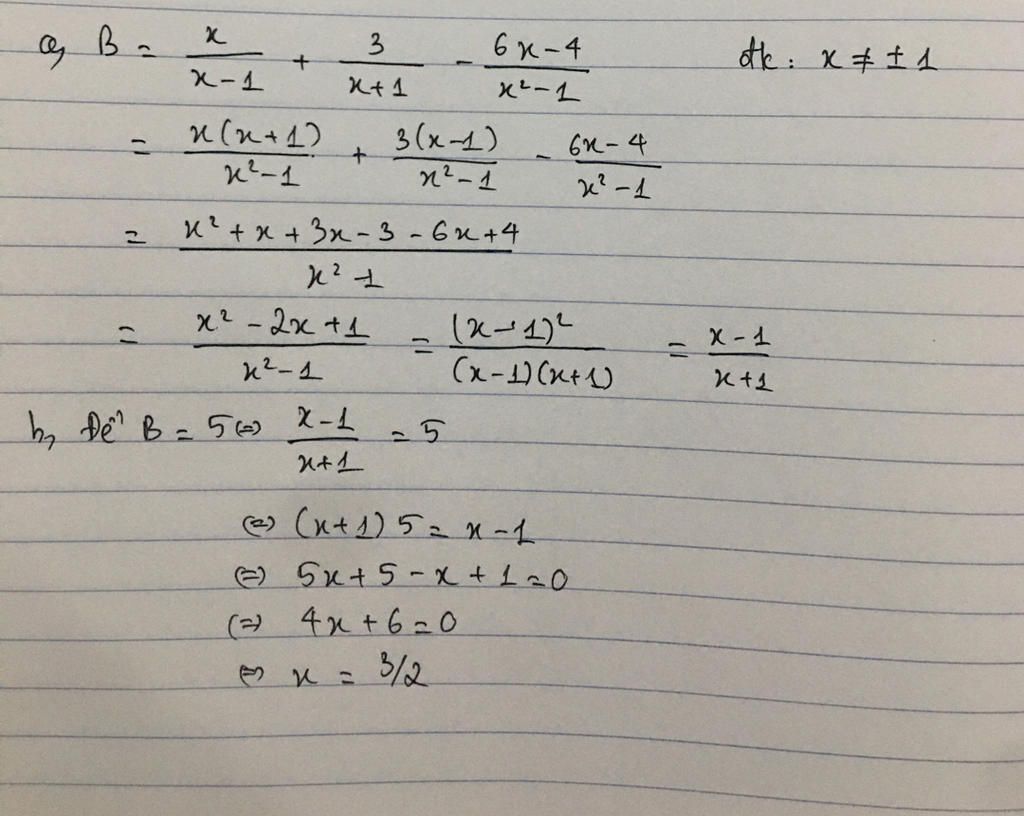 a, B = x/(x-1) + 3/(x+1) - (6x-4)/(x²-1) đk: x ≠ ±1
= x(x+1)/(x²-1) + 3(x-1)/(x²-1) - (6x-4)/(x²-1)
= (x²+x+3x-3-6x+4)/(x²-1)
= (x²-2x+1)/(x²-1) = (x-1)²/((x-1)(x+1)) = (x-1)/(x+1)
b, Để B = 5 ⇔ (x-1)/(x+1) = 5
⇔ (x+1)5 = x-1
⇔ 5x+5-x+1=0
⇔ 4x+6=0
⇔ x = 3/2